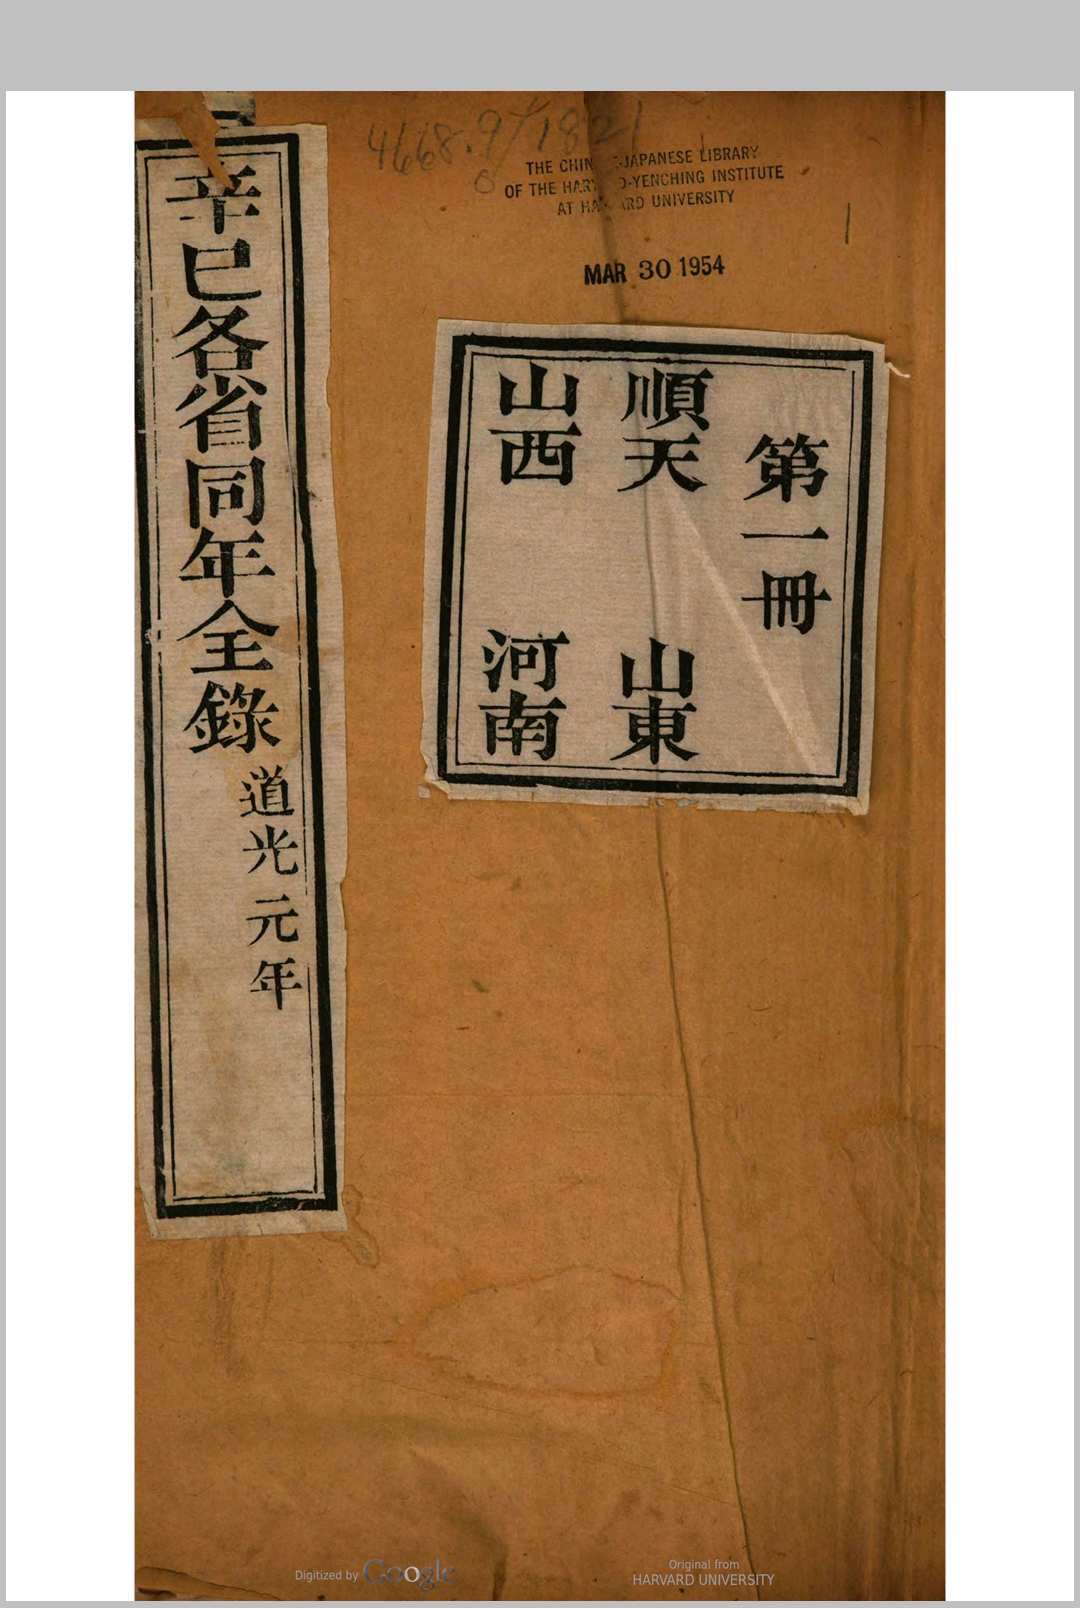 4668.9/1821
THE CHIN -JAPANESE LIBRARY
OF THE HAR D-YENCHING INSTITUTE
AT HA ARD UNIVERSITY
MAR 30 1954
第一冊
順天 山東
山西 河南
辛巳各省同年全錄
道光元年
Digitized by Google
Original from
HARVARD UNIVERSITY